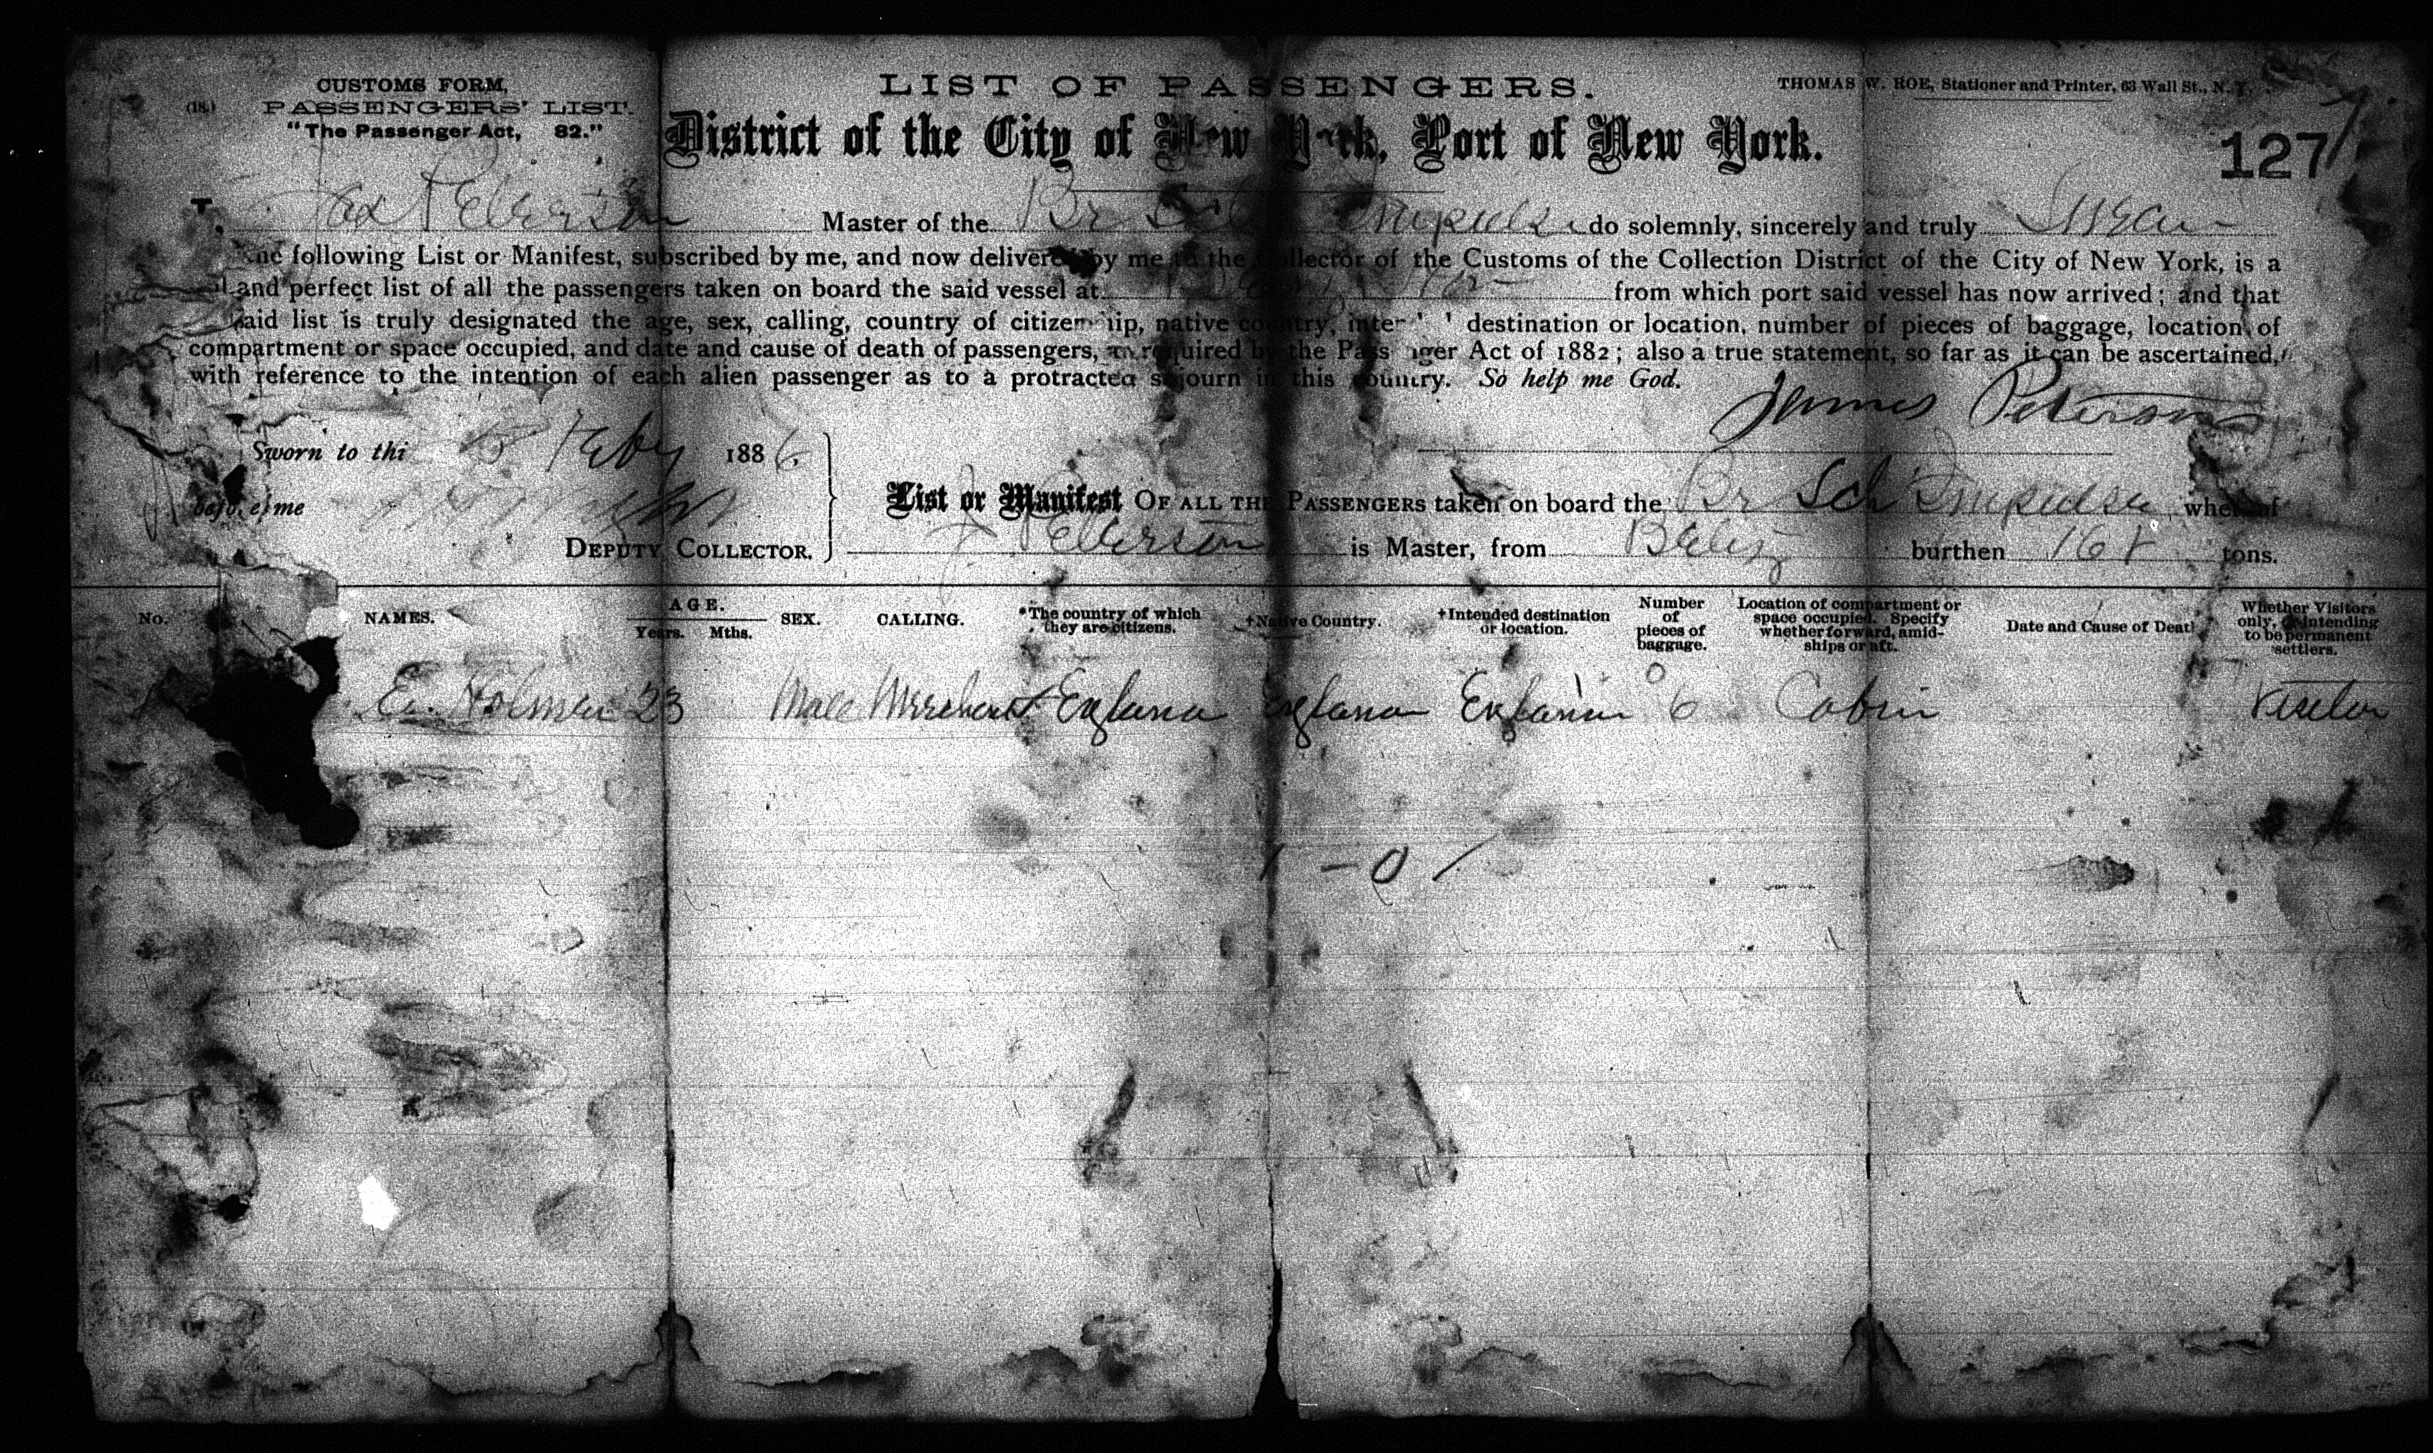 CUSTOMS FORM,
(18.) PASSENGERS' LIST.
"The Passenger Act, 82."
LIST OF PASSENGERS.
THOMAS W. ROE, Stationer and Printer, 63 Wall St., N. Y.
District of the City of New York, Port of New York.
127
Jas Peterson Master of the Br Impulse do solemnly, sincerely and truly Swear
following List or Manifest, subscribed by me, and now delivered by me to the Collector of the Customs of the Collection District of the City of New York, is a
and perfect list of all the passengers taken on board the said vessel at from which port said vessel has now arrived; and that
said list is truly designated the age, sex, calling, country of citizenship, native country, destination or location, number of pieces of baggage, location of
compartment or space occupied, and date and cause of death of passengers, as required by the Passenger Act of 1882; also a true statement, so far as it can be ascertained,
with reference to the intention of each alien passenger as to a protracted sojourn in this country. So help me God.
James Peterson
Sworn to thi Feby 1886.
before me
DEPUTY COLLECTOR.
List or Manifest OF ALL THE PASSENGERS taken on board the Br Sch Impulse whereof
J Peterson is Master, from Beliz burthen 168 tons.
No. NAMES. AGE. Years. Mths. SEX. CALLING. *The country of which they are citizens. †Native Country. †Intended destination or location. Number of pieces of baggage. Location of compartment or space occupied. Specify whether forward, amidships or aft. Date and Cause of Death Whether Visitors only, or intending to be permanent settlers.
E. Holman 23 Male Merchant England England England 6 Cabin Visitor
1 - 0 /